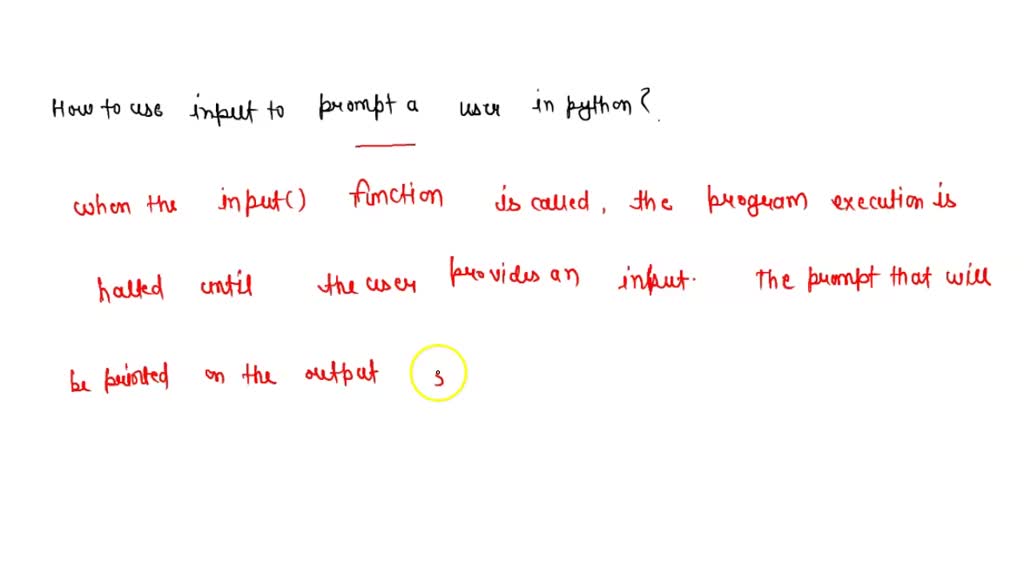 How to use input to prompt a user in python?
when the input() function is called, the program execution is
halted until the user provides an input. The prompt that will
be printed on the output s